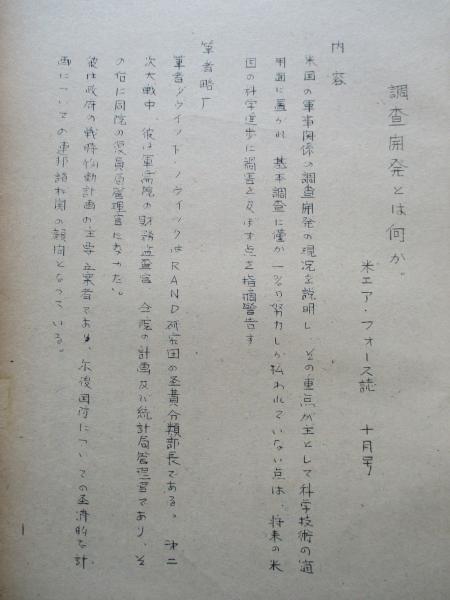 調査開発とは何か。
米エア・フォース誌　十月号
内容
米国の軍事関係の調査開発の現況を説明し、その重点が主として科学技術の適
用面に置かれ、基本調査に僅か一%の努力しか払われていない点は、将来の米
国の科学進歩に禍害を及ぼす点を指摘警告す
筆者略歴
筆者ダヴイツド・ノヴイツクはRAND研究団の経費分類部長である。第二
次大戦中、彼は軍需院の財務監査官、全院の計画及び統計局管理官であり、そ
の后に同院の復員局管理官になつた。
彼は政府の戦時物動計画の主要立案者であり、爾後国防についての経済的な計
画についての連邦諸機関の顧問となつている。
1